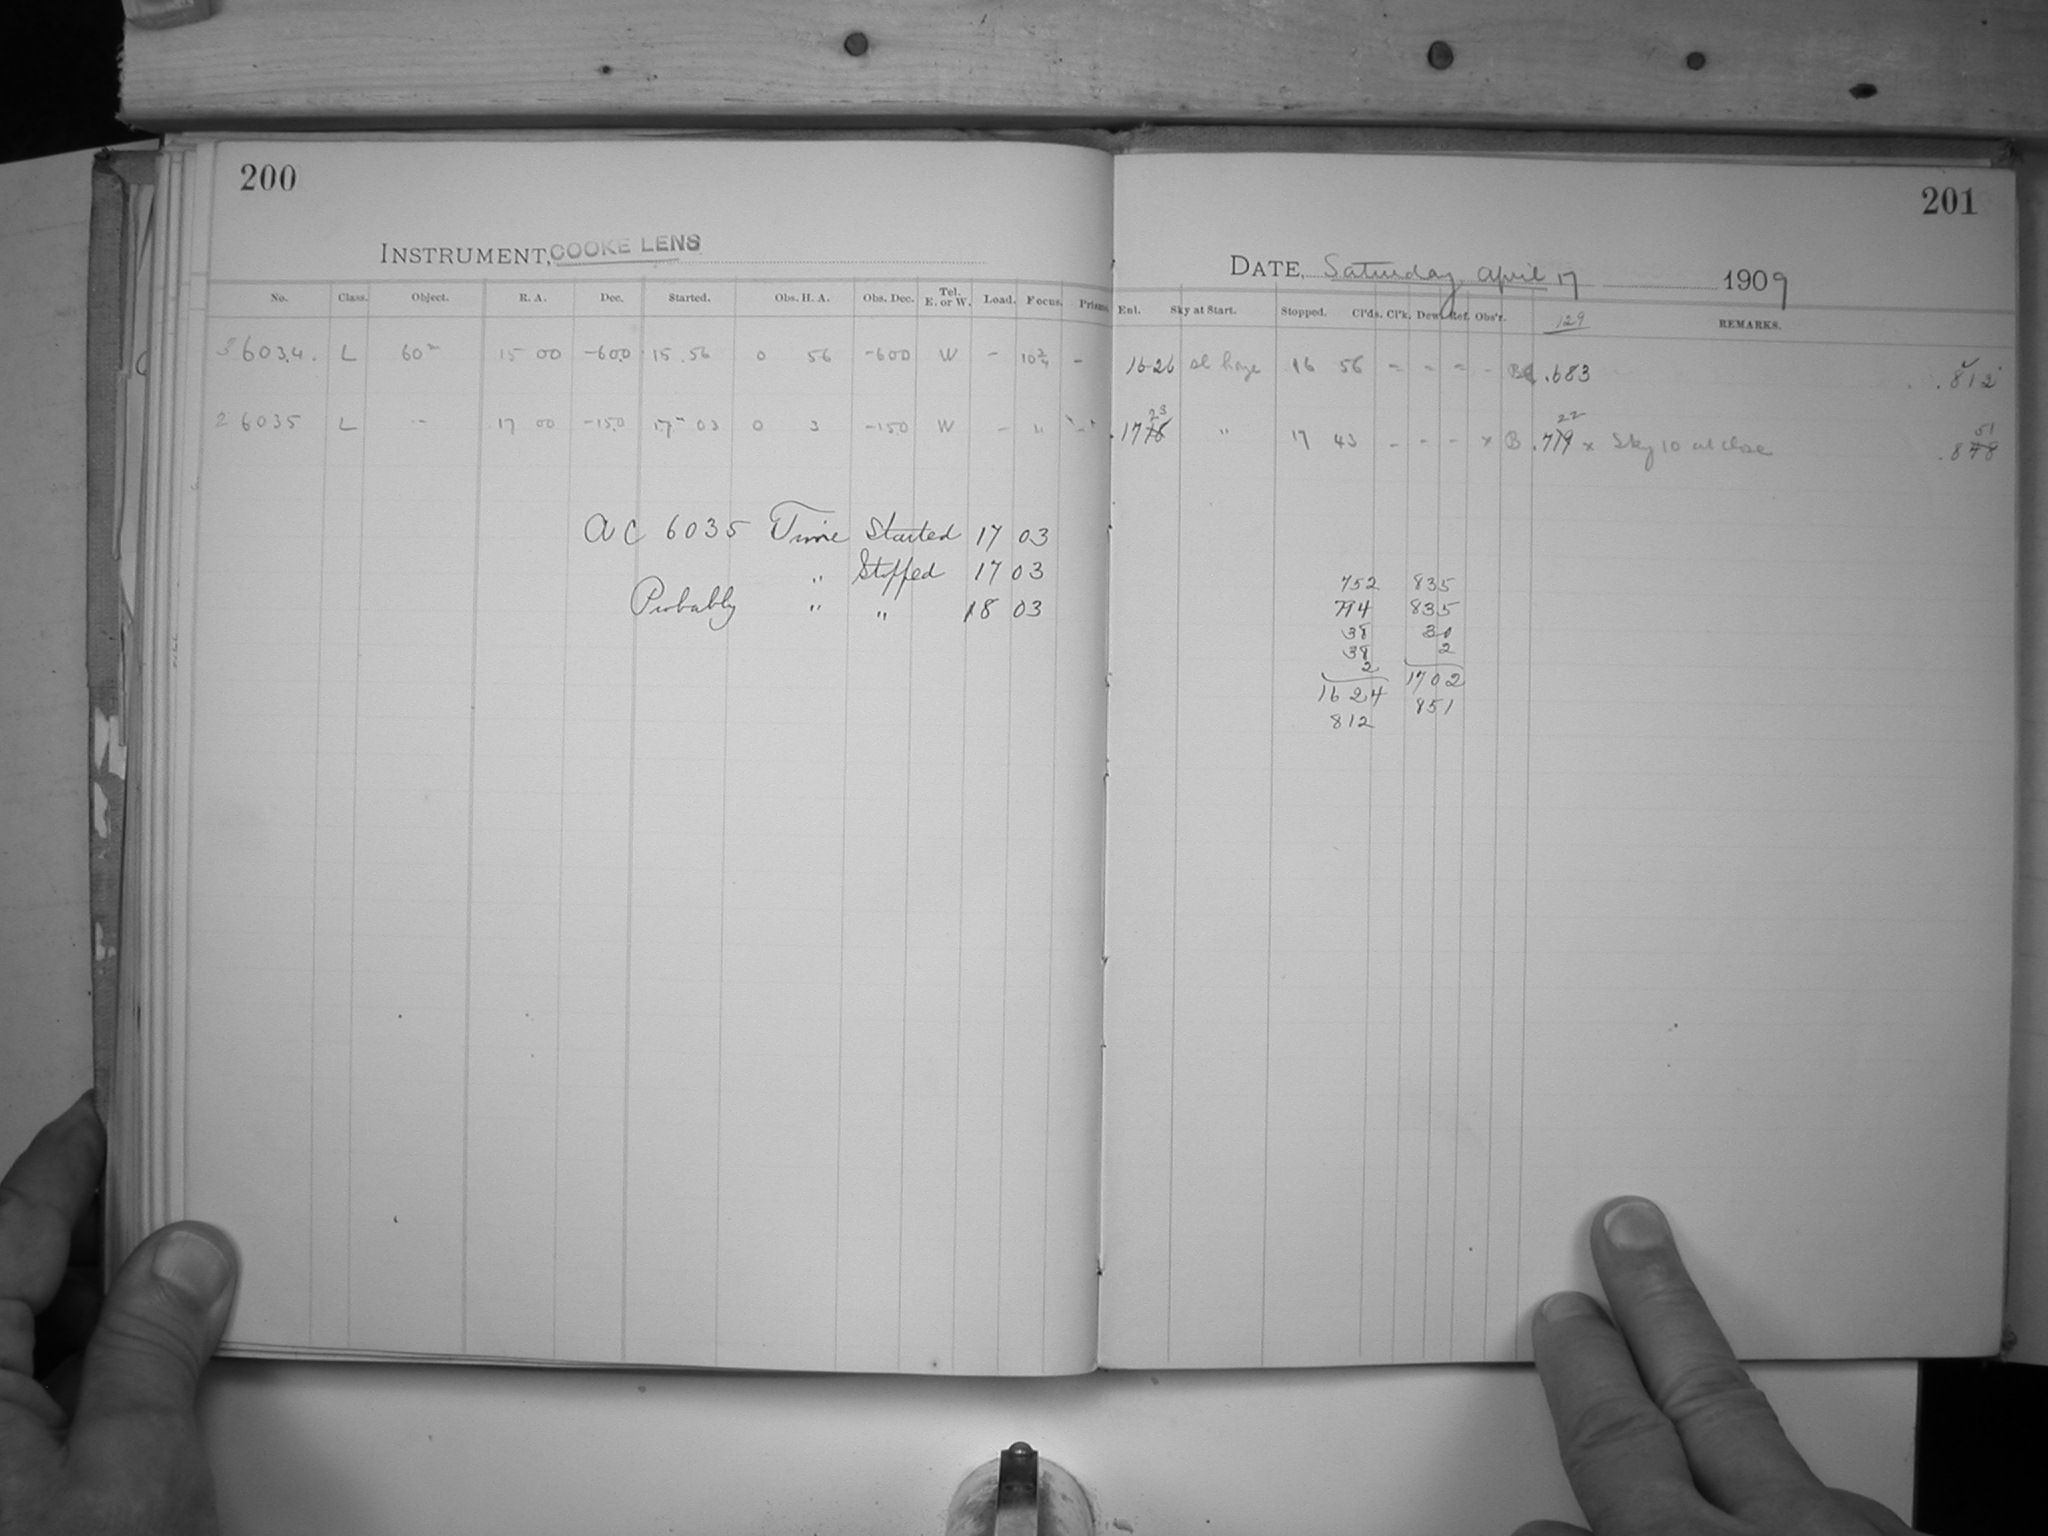 200
INSTRUMENT, COOKE LENS
No. Class. Object. R. A. Dec. Started. Obs. H. A. Obs. Dec. Tel. E. or W. Load. Focus. Prisms.
36034. L 60m 15 00 -60.0 15.56 0 56 -600 W - 10¾ -
2 6035 L - 17 00 -15.0 17 03 0 3 -150 W - "
AC 6035 Time Started 17 03
" Stopped 17 03
Probably " " 18 03
201
DATE, Saturday April 17 1909
Enl. Sky at Start. Stopped. Cl'ds. Cl'k. Dew. Ref. Obs'r. 129 REMARKS.
16 26 sl haze 16 56 - - - - .683 .812
23 22 51
17 " 17 43 - - - x B .719 x Sky 10 at close .878
752 835
794 835
38 30
38 2
2 1702
1624 851
812